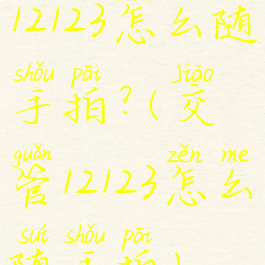 12123怎么随
shǒu pāi jiāo
手拍?(交
guǎn zěn me
管12123怎么
suí shǒu pāi
随手拍)